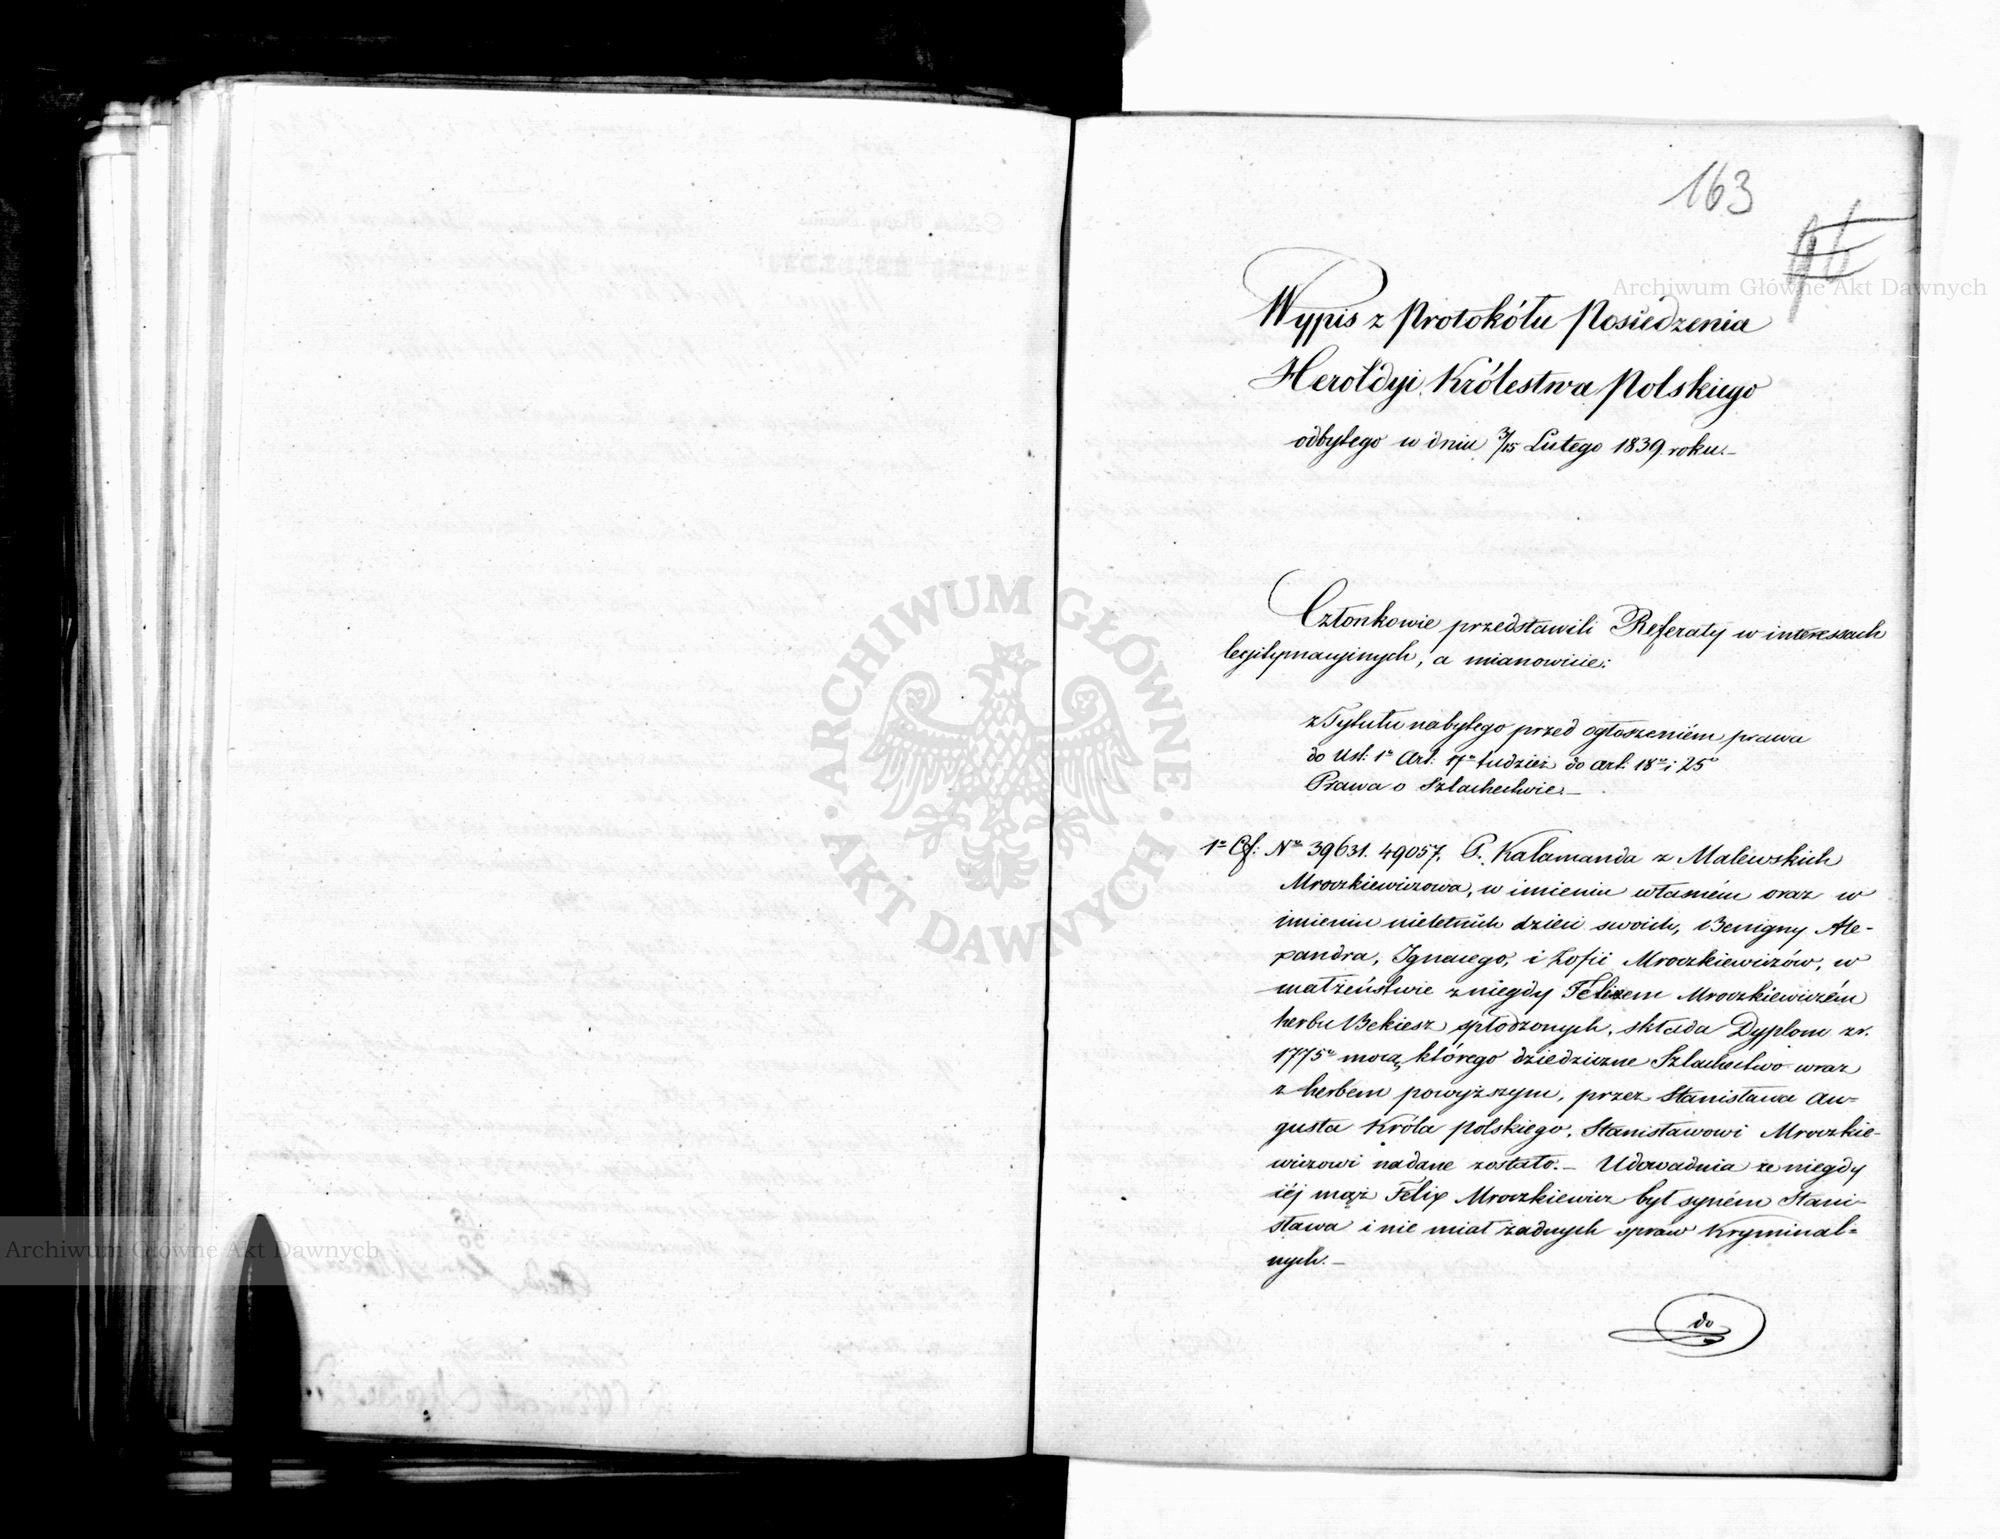 163
Wypis z Protokółu Posiedzenia
Heroldyi Królestwa Polskiego
odbytego w dniu 3/15 Lutego 1839 roku.–
Członkowie przedstawili Referaty w interessach
legitymacyjnych, a mianowicie:
z Tytułu nabytego przed ogłoszeniém prawa
do Ust: 1o Art: 17o tudzież do art: 18o i 25o
Prawa o Szlachectwie.–
1o Cf: No 39631. 49057. P. Kalamanda z Malewskich
Mroczkiewiczowa, w imieniu własném oraz w
imieniu nieletnich dzieci swoich, Benigny Ale-
xandra, Ignacego, i Zofii Mroczkiewiczów, w
małżeństwie z niegdy Felixem Mroczkiewiczém
herbu Bekiesz spłodzonych, składa Dyplom z r.
1775o mocą którego dziedziczne Szlachectwo wraz
z herbem powyższym, przez Stanisława Au=
gusta Króla polskiego, Stanisławowi Mroczkie-
wiczowi nadane zostało.– Udowadnia że niegdy
iéj mąż Felix Mroczkiewicz był syném Stani-
sława i nie miał żadnych spraw Kryminal=
nych.–
do
Archiwum Główne Akt Dawnych
Archiwum Główne Akt Dawnych
ARCHIWUM GŁÓWNE AKT DAWNYCH